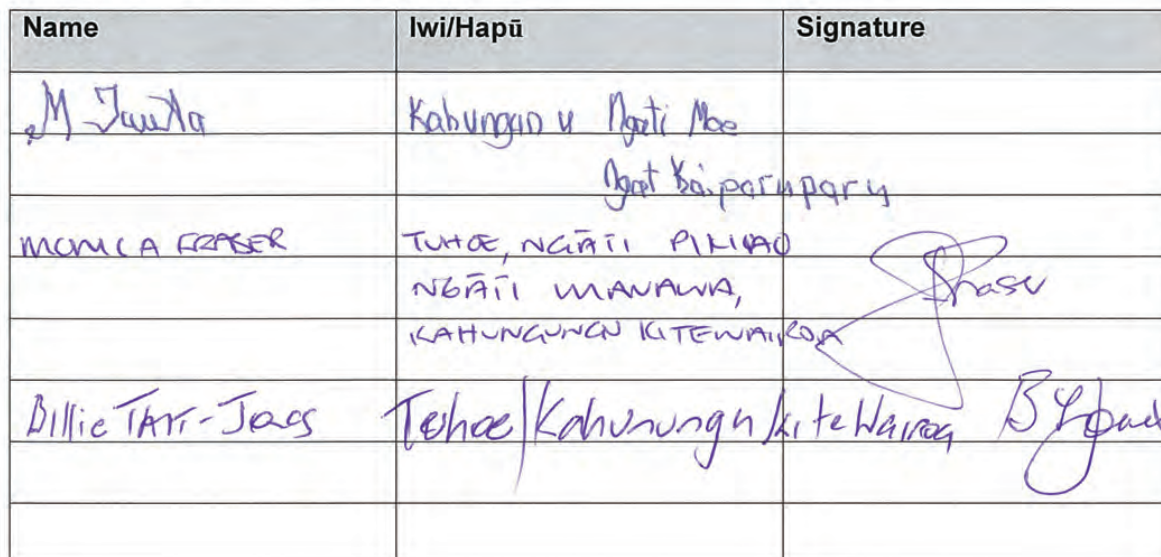 Name Iwi/Hapū Signature
M Kahungunu Ngati Moe
Ngat Kaiparuparu
MONICA FRASER TUHOE, NGĀTI PIKIAO
NGĀTI MANAWA,
KAHUNGUNGU KITEWAIROA
Billie Tehoe/Kahunungu ki te Wairoa